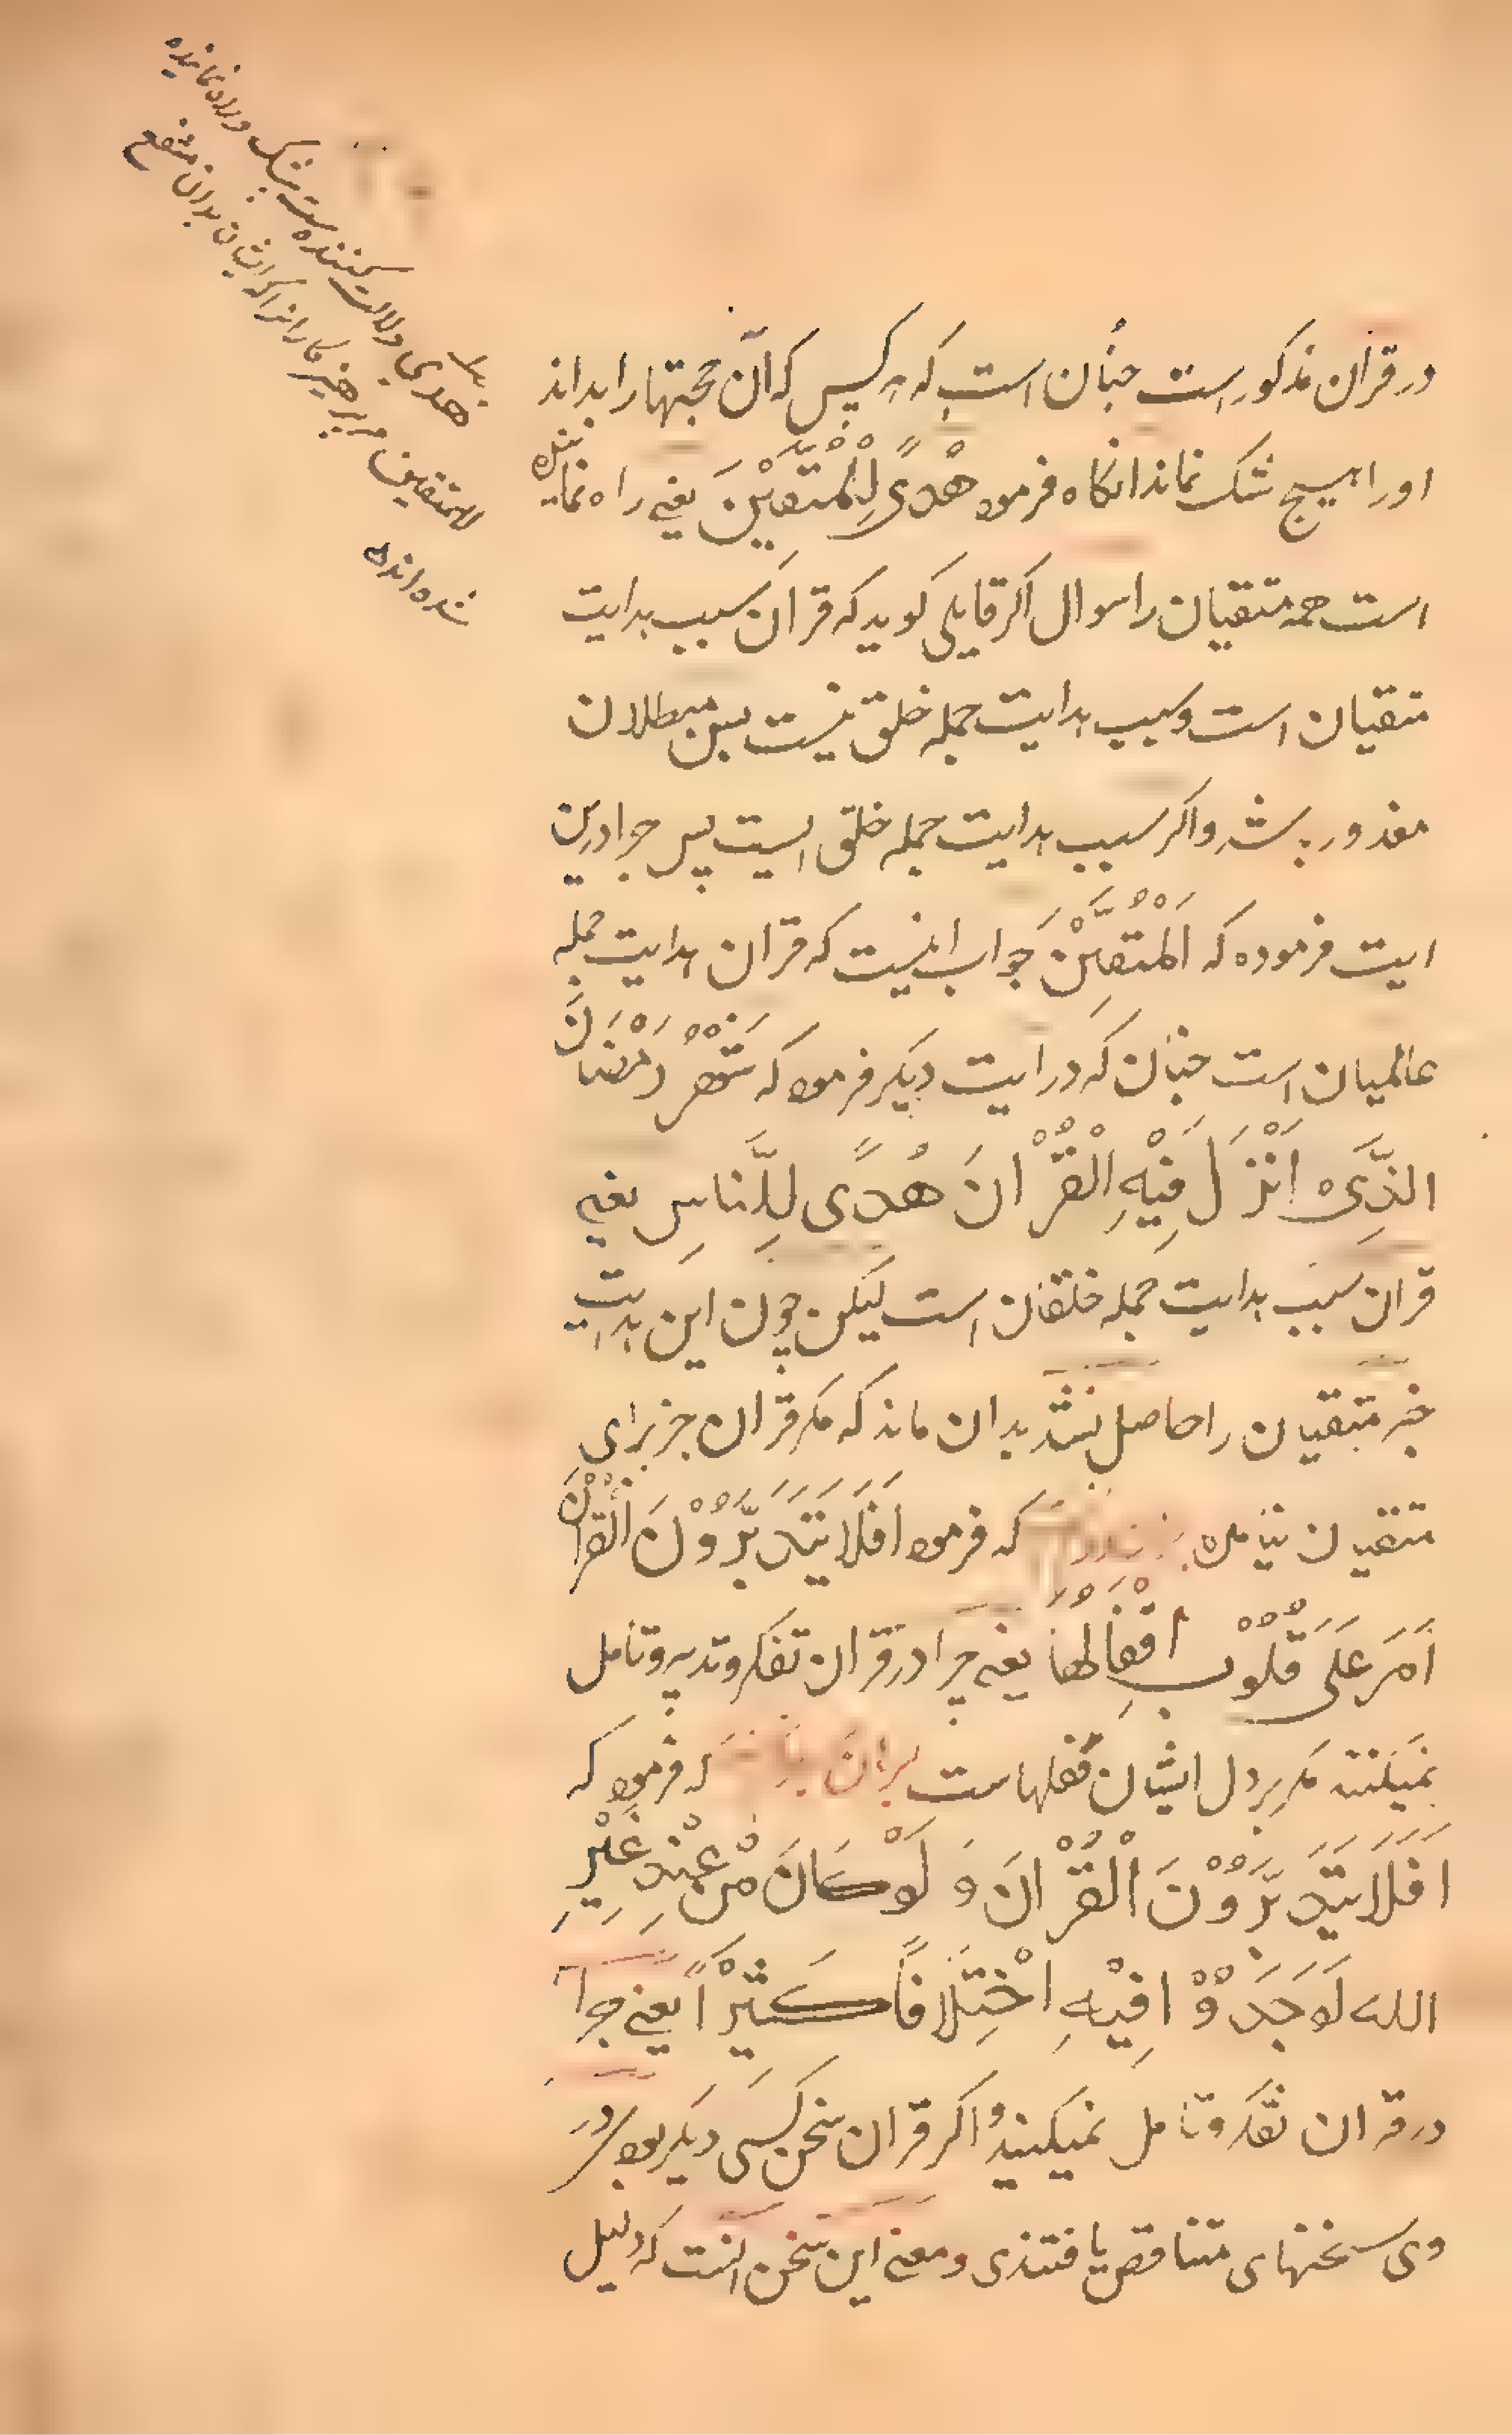 در قرآن مذکورست چنان است که هر کس که آن حجتها را بداند
او را هیچ شک نماند انکاه فرموده هُدًی لِلْمُتَّقِیْنَ یعنی راه نماینده
است همه متقیان را سوال اکر قایلی کوید که قران سبب هدایت
متقیان است و سبب هدایت جمله خلق نیست پس مبطلان
معذور باشند و اکر سبب هدایت جمله خلق است پس چرا درین
ایت فرموده که اَلْمُتَّقِیْنَ جواب انیست که قران هدایت جمله
عالمیان است چنان که در ایت دیکر فرموده که شَهْرُ رَمَضَانَ
الَّذِیْ اُنْزِلَ فِیْهِ الْقُرْانَ هُدًی لِلنَّاسِ یعنی
قران سبب هدایت جمله خلقان است لیکن چون این هدایت
جز متقیان را حاصل نشد بدان ماند که مکر قران جز برای
متقیان نیامده که فرموده اَفَلَا یَتَدَبَّرُوْنَ الْقُرْانَ
اَمْ عَلَی قُلُوْبٍ اَقْفَالُهَا یعنی چرا در قران تفکر و تدبر و تامل
نمیکنند مکر بر دل ایشان قفلهاست که فرموده که
اَفَلَا یَتَدَبَّرُوْنَ الْقُرْانَ وَ لَوْ کَانَ مِنْ عِنْدِ غَیْرِ
الله لَوَجَدُوْا فِیْهِ اخْتِلَافًا کَثِیْرًا یعنی چرا
در قران تفکر و تامل نمیکنید و اکر قران سخن کسی دیکر بودی در
وی سخنهای متناقض یافتندی و معنی این سخن آنست که دلیل
هدی دلالت کننده ست بیشک و راه نماینده
للمتقین مر پرهیزکارانرا که ایشان بدان منتفع
شده اند